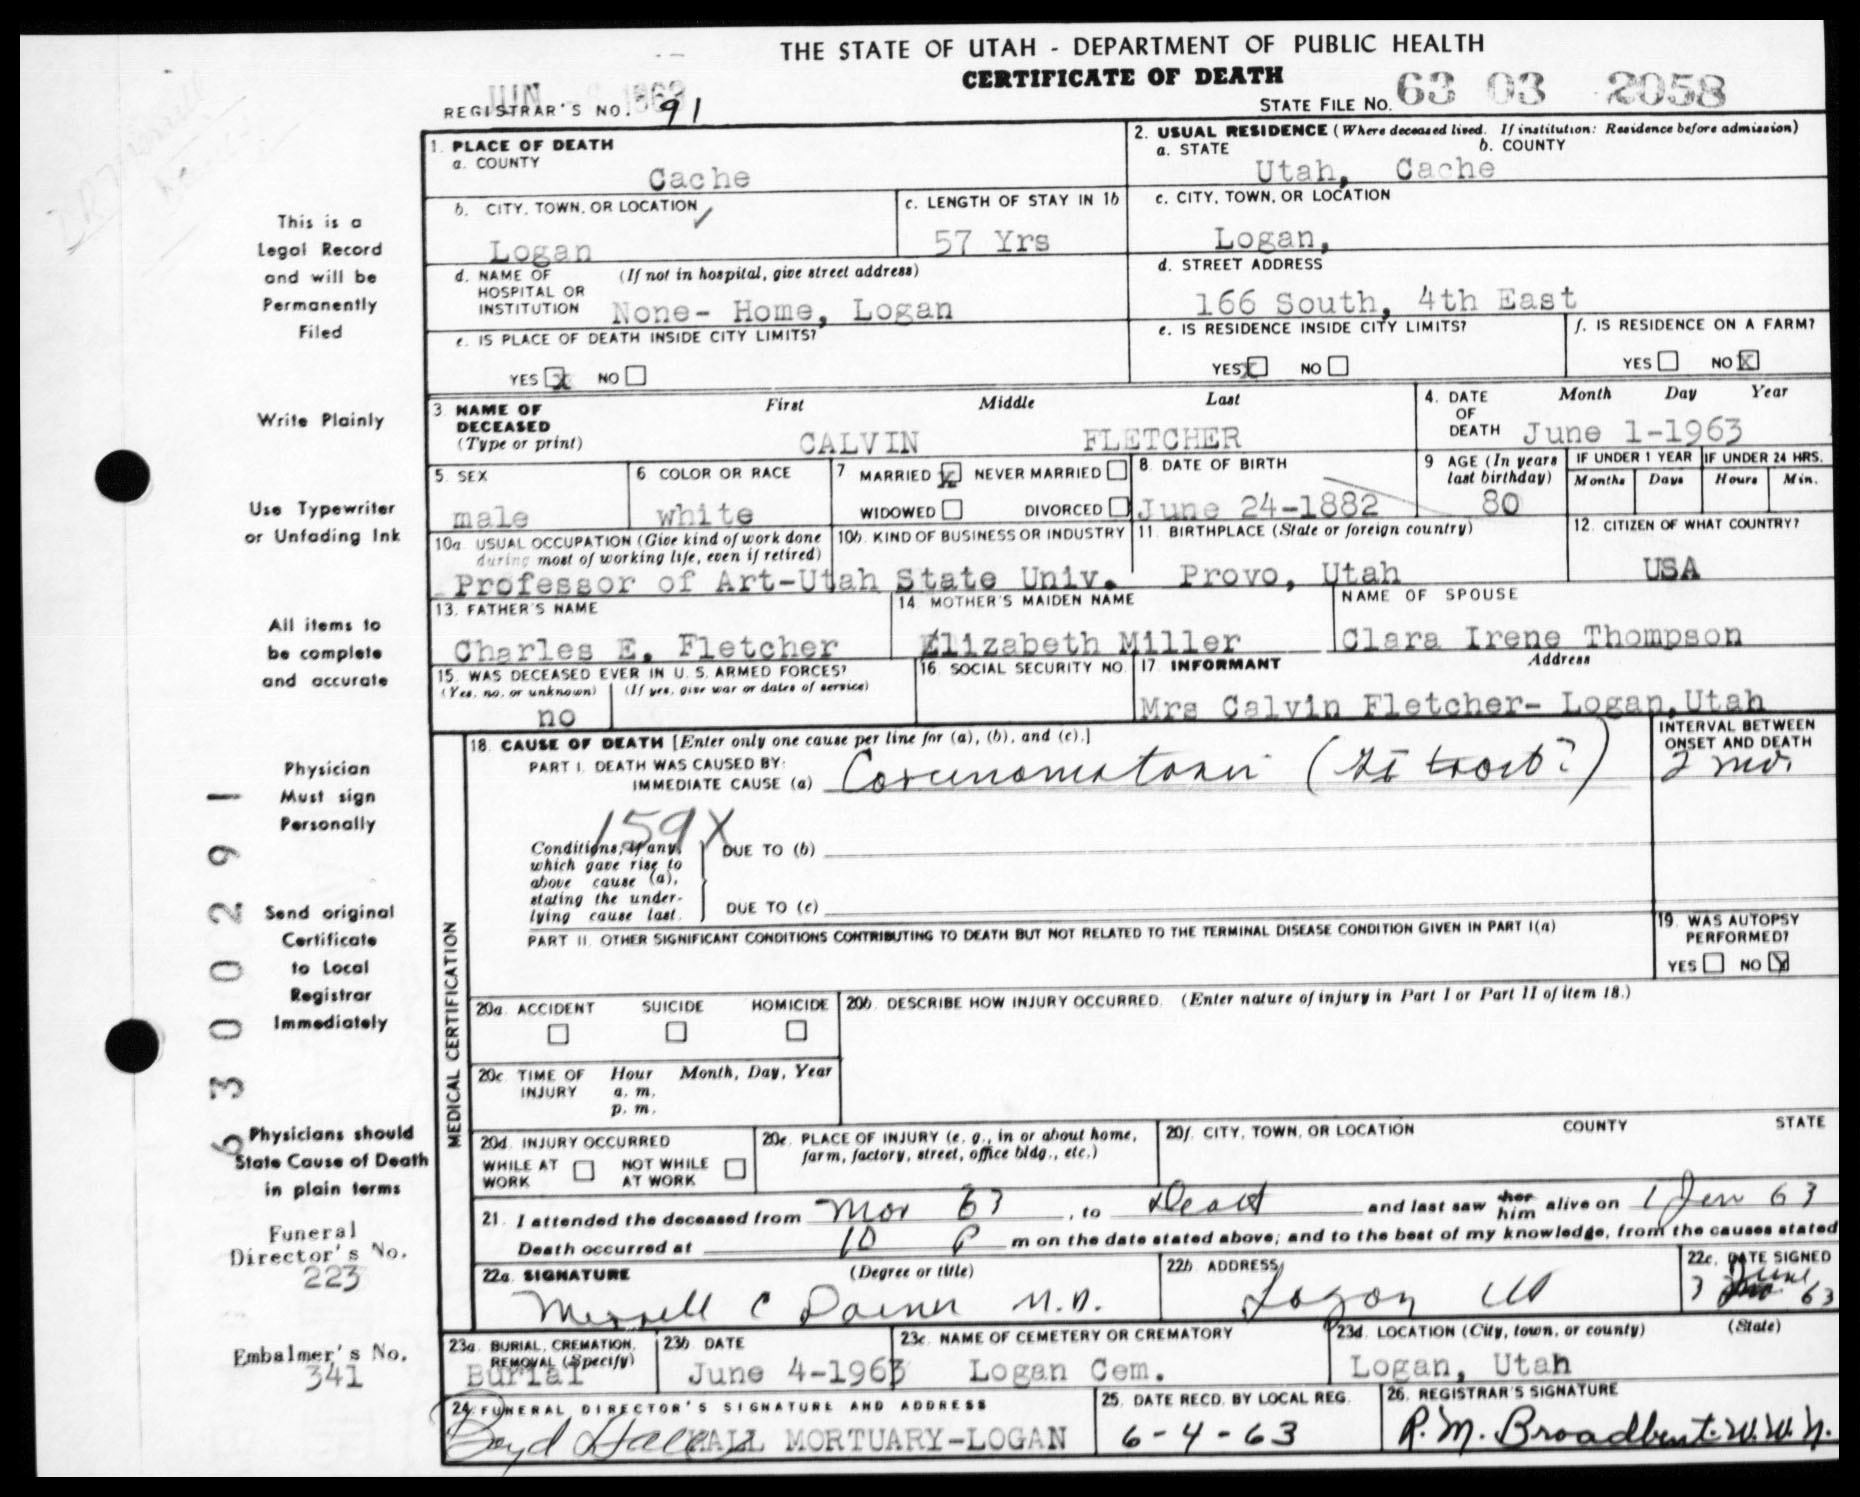 THE STATE OF UTAH - DEPARTMENT OF PUBLIC HEALTH
CERTIFICATE OF DEATH
JUN 1963
REGISTRAR'S NO. 91
STATE FILE NO. 63 03 2058
1. PLACE OF DEATH
a. COUNTY
Cache
2. USUAL RESIDENCE (Where deceased lived. If institution: Residence before admission)
a. STATE b. COUNTY
Utah, Cache
b. CITY, TOWN, OR LOCATION
Logan
c. LENGTH OF STAY IN 1b
57 Yrs
c. CITY, TOWN, OR LOCATION
Logan,
d. NAME OF HOSPITAL OR INSTITUTION (If not in hospital, give street address)
None- Home, Logan
d. STREET ADDRESS
166 South, 4th East
e. IS PLACE OF DEATH INSIDE CITY LIMITS?
YES X NO
e. IS RESIDENCE INSIDE CITY LIMITS?
YES X NO
f. IS RESIDENCE ON A FARM?
YES NO X
3. NAME OF DECEASED (Type or print)
First Middle Last
CALVIN FLETCHER
4. DATE OF DEATH
Month Day Year
June 1-1963
5. SEX
male
6 COLOR OR RACE
white
7 MARRIED X NEVER MARRIED
WIDOWED DIVORCED
8. DATE OF BIRTH
June 24-1882
9 AGE (In years last birthday)
80
IF UNDER 1 YEAR
Months Days
IF UNDER 24 HRS.
Hours Min.
10a. USUAL OCCUPATION (Give kind of work done during most of working life, even if retired)
10b. KIND OF BUSINESS OR INDUSTRY
Professor of Art-Utah State Univ.
11. BIRTHPLACE (State or foreign country)
Provo, Utah
12. CITIZEN OF WHAT COUNTRY?
USA
13. FATHER'S NAME
Charles E. Fletcher
14. MOTHER'S MAIDEN NAME
Elizabeth Miller
NAME OF SPOUSE
Clara Irene Thompson
15. WAS DECEASED EVER IN U. S. ARMED FORCES?
(Yes, no, or unknown) (If yes, give war or dates of service)
no
16. SOCIAL SECURITY NO.
17. INFORMANT Address
Mrs Calvin Fletcher- Logan, Utah
18. CAUSE OF DEATH [Enter only one cause per line for (a), (b), and (c).]
PART I. DEATH WAS CAUSED BY:
IMMEDIATE CAUSE (a)
INTERVAL BETWEEN ONSET AND DEATH
2 mo.
159X
Conditions, if any,
which gave rise to
above cause (a),
stating the under-
lying cause last.
DUE TO (b)
DUE TO (c)
PART II. OTHER SIGNIFICANT CONDITIONS CONTRIBUTING TO DEATH BUT NOT RELATED TO THE TERMINAL DISEASE CONDITION GIVEN IN PART I(a)
19. WAS AUTOPSY PERFORMED?
YES NO X
MEDICAL CERTIFICATION
20a. ACCIDENT SUICIDE HOMICIDE
20b. DESCRIBE HOW INJURY OCCURRED. (Enter nature of injury in Part I or Part II of item 18.)
20c. TIME OF INJURY
Hour Month, Day, Year
a. m.
p. m.
20d. INJURY OCCURRED
WHILE AT WORK NOT WHILE AT WORK
20e. PLACE OF INJURY (e. g., in or about home, farm, factory, street, office bldg., etc.)
20f. CITY, TOWN, OR LOCATION COUNTY STATE
21. I attended the deceased from Mar 63, to Death and last saw her him alive on 1 Jun 63
Death occurred at 10 P m on the date stated above; and to the best of my knowledge, from the causes stated
22a. SIGNATURE (Degree or title)
Merrell C Daines M.D.
22b. ADDRESS
Logan Ut
22c. DATE SIGNED
3 June 63
23a. BURIAL, CREMATION, REMOVAL (Specify)
Burial
23b. DATE
June 4-1963
23c. NAME OF CEMETERY OR CREMATORY
Logan Cem.
23d. LOCATION (City, town, or county) (State)
Logan, Utah
24. FUNERAL DIRECTOR'S SIGNATURE AND ADDRESS
Boyd Hall HALL MORTUARY-LOGAN
25. DATE RECD. BY LOCAL REG.
6-4-63
26. REGISTRAR'S SIGNATURE
R. M. Broadbent. W.W.N.
This is a
Legal Record
and will be
Permanently
Filed
Write Plainly
Use Typewriter
or Unfading Ink
All items to
be complete
and accurate
Physician
Must sign
Personally
Send original
Certificate
to Local
Registrar
Immediately
Physicians should
State Cause of Death
in plain terms
Funeral
Director's No.
223
Embalmer's No.
341
6300291